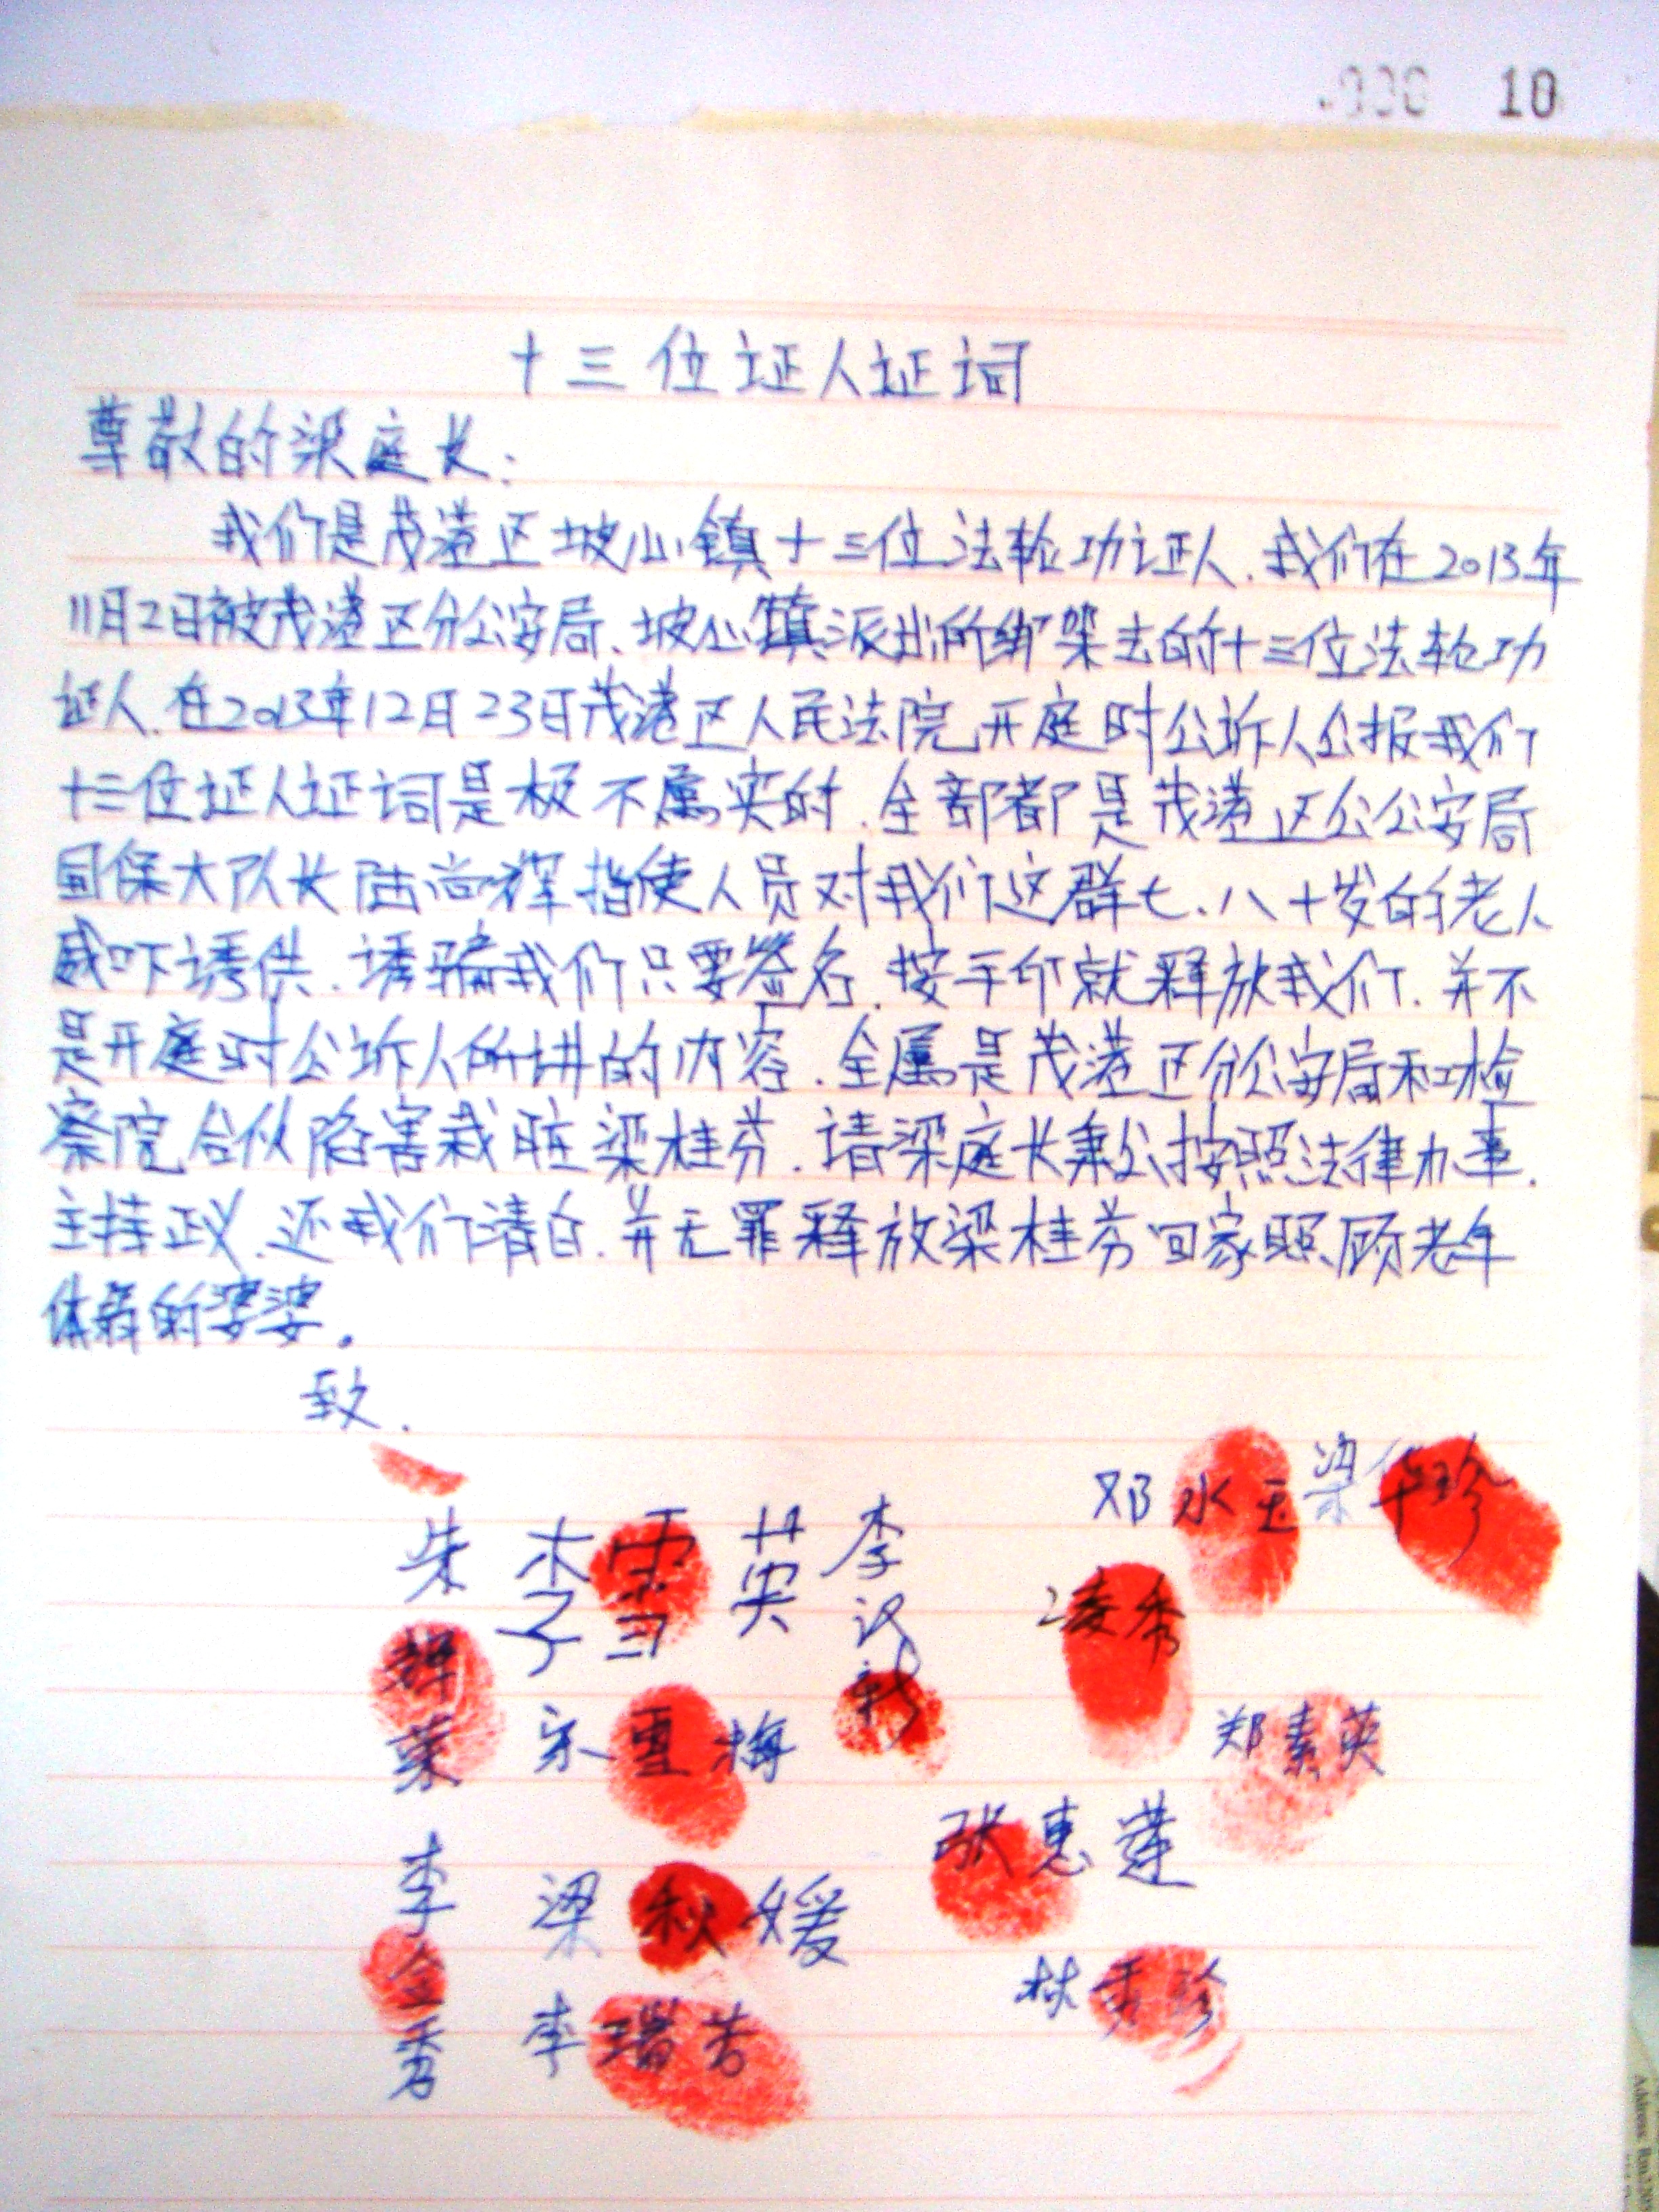 10
十三位证人证词
尊敬的梁庭长:
我们是茂港区坡心镇十三位法轮功证人.我们在2013年
11月2日被茂港区分公安局、坡心镇派出所绑架去的十三位法轮功
证人.在2013年12月23日茂港区人民法院开庭时公诉人公报我们
十三位证人证词是极不属实的.全部都是茂港区公公安局
国保大队长陆尚辉指使人员对我们这群七、八十岁的老人
威吓诱供.诱骗我们只要签名.按手印就释放我们.并不
是开庭时公诉人所讲的内容.全属是茂港区分公安局和检
察院合伙陷害栽脏梁桂芬.请梁庭长秉公按照法律办事.
主持正义.还我们清白.并无罪释放梁桂芬回家照顾老年
体弱的婆婆。
致.
邓水玉 梁华珍
朱辉荣 李雪英 李汉新
凌秀
宋雪梅 郑素英
张惠莲
李金秀 梁秋媛
林秀珍
李瑞芳